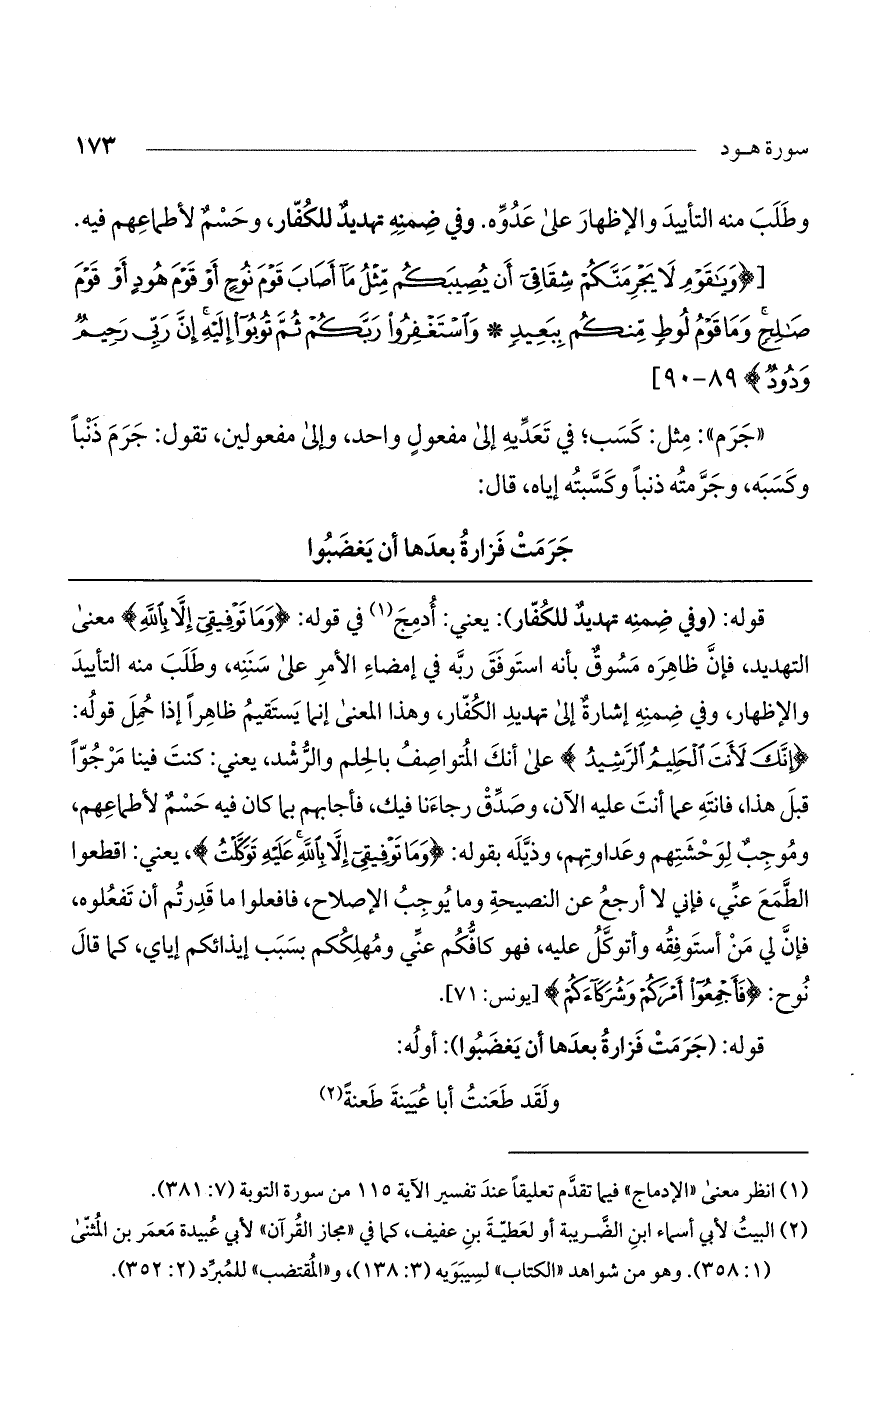 سورة هـود ١٧٣
وطَلَبَ منه التأييدَ والإظهارَ علىٰ عَدُوِّه. وفي ضِمنِه تهديدٌ للكُفّار، وحَسْمٌ لأطماعِهم فيه.
[﴿وَيَٰقَوْمِ لَا يَجْرِمَنَّكُمْ شِقَاقِىٓ أَن يُصِيبَكُم مِّثْلُ مَآ أَصَابَ قَوْمَ نُوحٍ أَوْ قَوْمَ هُودٍ أَوْ قَوْمَ
صَٰلِحٍ ۚ وَمَا قَوْمُ لُوطٍ مِّنكُم بِبَعِيدٍ * وَٱسْتَغْفِرُوا۟ رَبَّكُمْ ثُمَّ تُوبُوٓا۟ إِلَيْهِ ۚ إِنَّ رَبِّى رَحِيمٌ
وَدُودٌ﴾ ٨٩-٩٠]
«جَرَم»: مِثل: كَسَب؛ في تَعَدِّيهِ إلىٰ مفعولٍ واحد، وإلىٰ مفعولين، تقول: جَرَمَ ذَنْباً
وكَسَبَه، وجَرَّمتُه ذنباً وكَسَّبتُه إياه، قال:
جَرَمَتْ فَزارةُ بعدَها أن يَغضَبُوا
قوله: (وفي ضِمنِه تهديدٌ للكُفّار): يعني: أُدمِجَ(١) في قوله: ﴿وَمَا تَوْفِيقِىٓ إِلَّا بِٱللَّهِ﴾ معنىٰ
التهديد، فإنَّ ظاهِرَه مَسُوقٌ بأنه استَوفَقَ ربَّه في إمضاءِ الأمرِ علىٰ سَنَنِه، وطَلَبَ منه التأييدَ
والإظهار، وفي ضِمنِهِ إشارةٌ إلىٰ تهديدِ الكُفّار، وهذا المعنىٰ إنما يَستَقيمُ ظاهِراً إذا حُمِلَ قولُه:
﴿إِنَّكَ لَأَنتَ ٱلْحَلِيمُ ٱلرَّشِيدُ﴾ علىٰ أنكَ المُتواصِفُ بالحِلمِ والرُّشد، يعني: كنتَ فينا مَرْجُوّاً
قبلَ هذا، فانتَهِ عما أنتَ عليه الآن، وصَدِّقْ رجاءَنا فيك، فأجابهم بما كان فيه حَسْمٌ لأطماعِهم،
ومُوجِبٌ لِوَحْشَتِهم وعَداوتِهم، وذيَّلَه بقوله: ﴿وَمَا تَوْفِيقِىٓ إِلَّا بِٱللَّهِ ۚ عَلَيْهِ تَوَكَّلْتُ﴾، يعني: اقطعوا
الطَّمَعَ عنِّي، فإني لا أرجعُ عن النصيحةِ وما يُوجِبُ الإصلاح، فافعلوا ما قَدِرتُم أن تَفعُلوه،
فإنَّ لي مَنْ أستَوفِقُه وأتوكَّلُ عليه، فهو كافُّكُم عنِّي ومُهلِكُكم بسَبَب إيذائكم إياي، كما قالَ
نُوح: ﴿فَأَجْمِعُوٓا۟ أَمْرَكُمْ وَشُرَكَآءَكُمْ﴾ [يونس: ٧١].
قوله: (جَرَمَتْ فَزارةُ بعدَها أن يَغضَبُوا): أولُه:
ولَقَد طَعَنتُ أبا عُيَينةَ طَعنةً(٢)
(١) انظر معنىٰ «الإدماج» فيما تقدَّم تعليقاً عندَ تفسير الآية ١١٥ من سورة التوبة (٧: ٣٨١).
(٢) البيتُ لأبي أسماء ابنِ الضَّريبة أو لعَطيّةَ بنِ عفيف، كما في «مجاز القُرآن» لأبي عُبيدة مَعمَر بن المُثنّىٰ
(١: ٣٥٨). وهو من شواهد «الكتاب» لسِيبَوَيه (٣: ١٣٨)، و«المُقتضب» للمُبرِّد (٢: ٣٥٢).